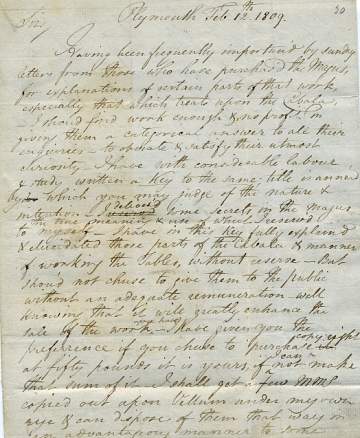 Plymouth Feb 12.th 1809. 30
Sir,
Having been frequently importuned by sundry
letters from those who have purchased the Magus,
for explanations of certain parts of that work,
especially that which treats upon the Cabala,
I should find work enough & no profit in
giving them a categorical answer to all their
enquiries - to obviate & satisfy their utmost
curiosity I have with considerable labour,
& study written a Key to the same; title is annexed
by which you may judge of the nature &
intention I some secrets, in the Magus
the true manner & use of which I reserved
to myself I have in this Key fully explained
& elucidated those parts of the Cabala & manner
of working the Tables, without reserve - but
shou'd not chuse to give them to the public
without an adequate remuneration well
knowing that it will greatly enhance the
sale of the work I have given you the
preference if you chuse to purchase copy right
at fifty pounds it is yours, if not make
that sum of it I shall get a few MMS
copied out upon Vellum under my own
eye & can dispose of them that way in
an advantageous manner to some